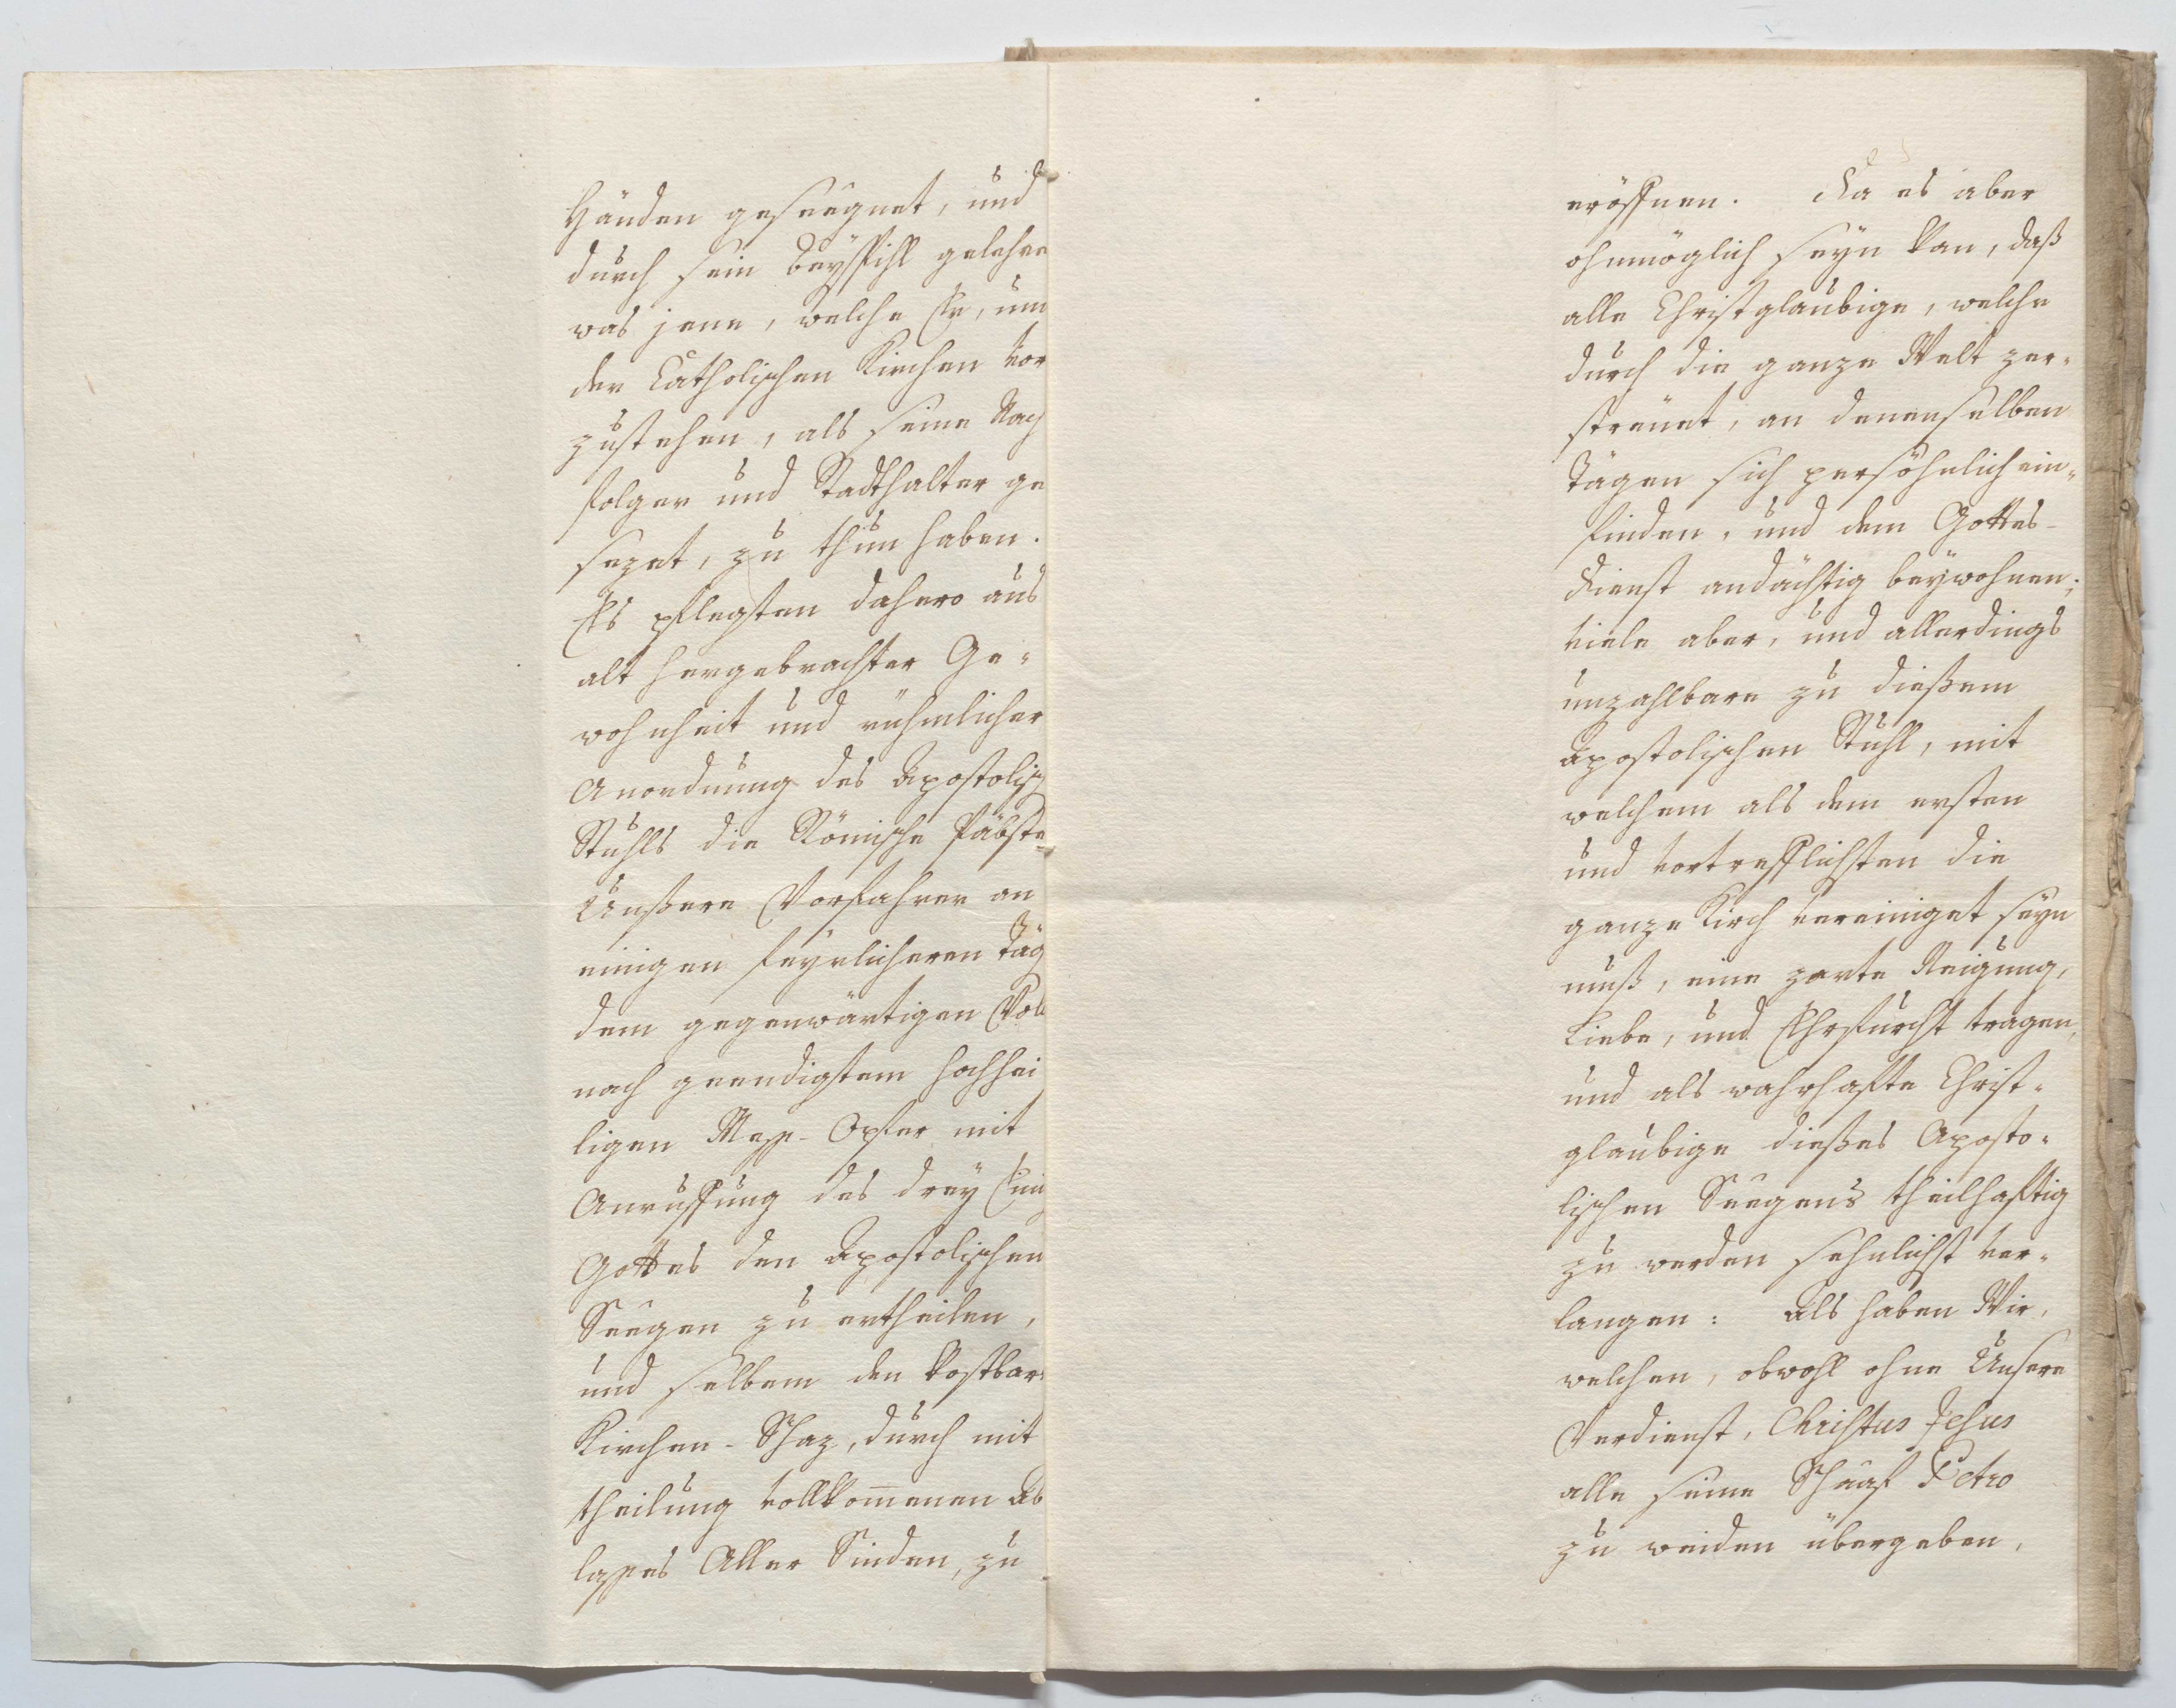 Händen geseegnet, und
durch sein Beyspihl gelehre
was jene, welche Er, um
der Catholischen Kirchen vor
zustehen, als seine Nach
folger und Stadthalter ge
sezet, zu thun haben.
Es pflegten dahero aus
alt hergebrachter Ge-
wohnheit und rühmlicher
Anordnung des Apostolisch
Stuhls die Römische Päbste
Unßere Vorfahrer an
einigen feyrlicheren Täg
dem gegenwärtigen Vol
nach geendigtem hochhei
ligen Mess-Opfer mit
Anruffung des drey Einig
Gottes den Apostolischen
Seegen zu ertheilen,
und selbem den kostbar
Kirchen-Schaz, durch mit
theilung vollkom̅enen Ab
lasses Aller Sünden, zu
eröffnen. Da es aber
ohnmöglich seyn kan, daß
alle Christglaubige, welche
durch die ganze Welt zer-
streuet, an denenselben
Tägen sich persöhnlich ein-
finden, und dem Gottes-
dienst andächtig beywohnen;
viele aber, und allerdings
unzahlbare zu dießem
Apostolischen Stuhl, mit
welchem als dem ersten
und vortrefflichsten die
ganze Kirch vereiniget seyn
muß, eine zarte Neigung,
Liebe, und Ehrfurcht tragen,
und als wahrhafte Christ-
glaubige dießes Aposto-
lischen Seegens theilhaftig
zu werden sehnlichst ver-
langen: Als haben Wir,
welchen, obwohl ohne Unsere
Verdienst, Christus Jesus
alle seine Schaaf Petro
zu weiden übergeben,